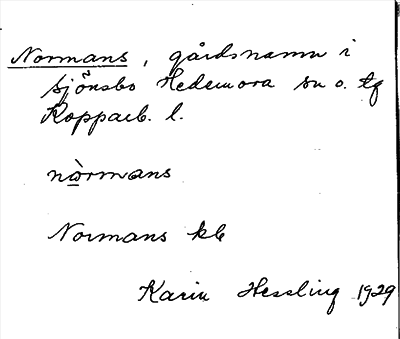 Normans, gårdsnamn i
Sjönsbo Hedemora sn o. tg
Kopparb. l.
nòrmans
Normans kb
Karin Hessling 1929